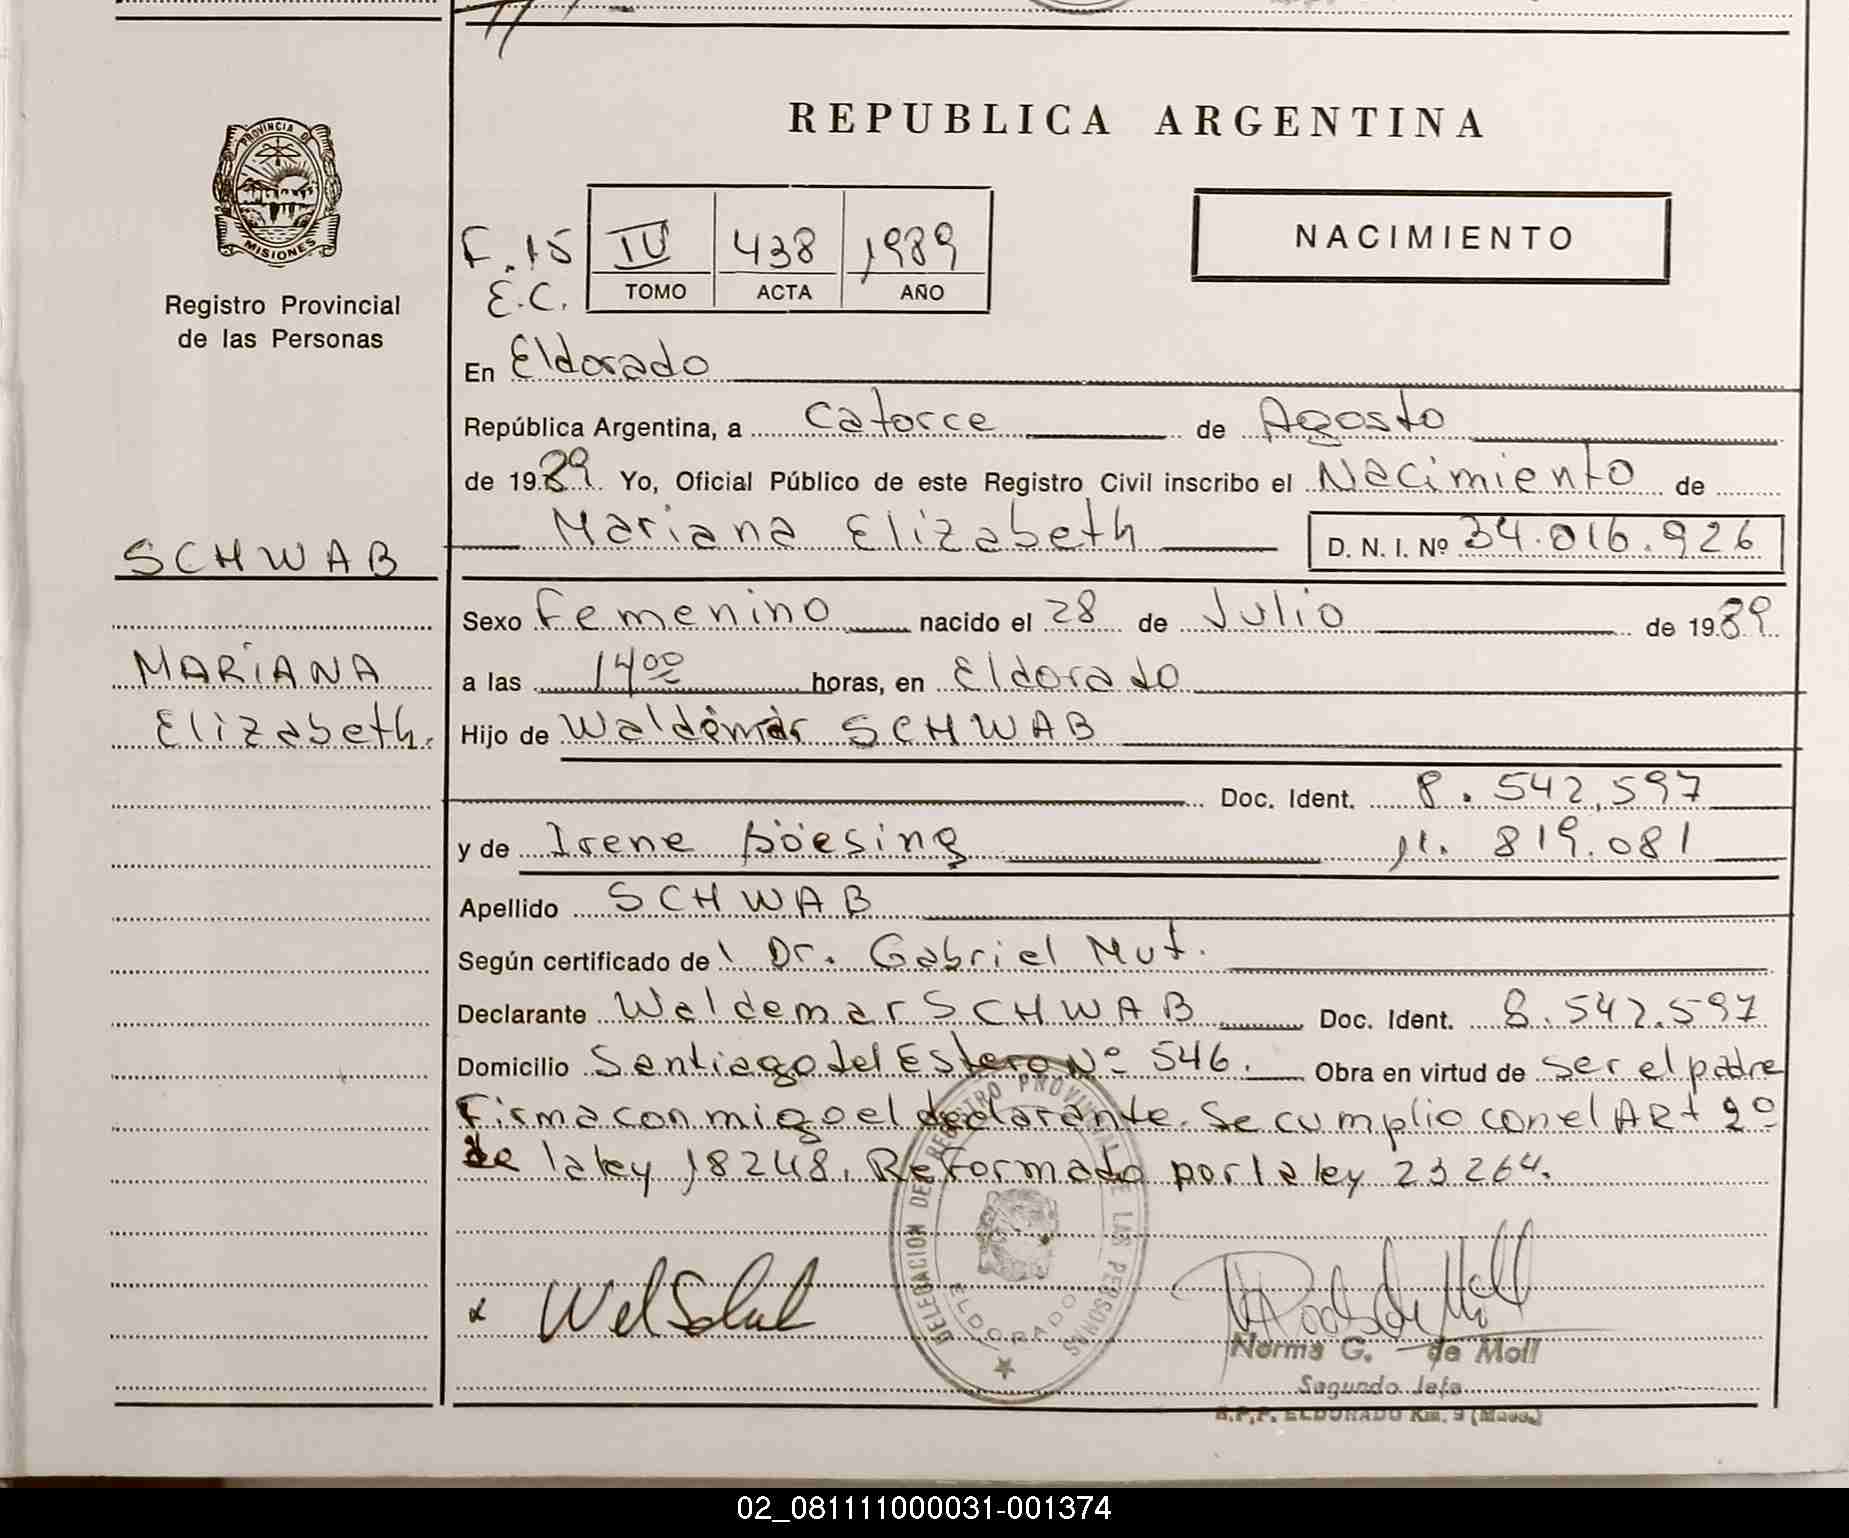 REPUBLICA ARGENTINA
PROVINCIA DE
MISIONES
Registro Provincial
de las Personas
F.15 IV 438 1989
E.C. TOMO ACTA AÑO
NACIMIENTO
En Eldorado
República Argentina, a Catorce de Agosto
de 1989 Yo, Oficial Público de este Registro Civil inscribo el Nacimiento de
Mariana Elizabeth D. N. I. Nº 34.016.926
SCHWAB
MARIANA
Elizabeth.
Sexo Femenino nacido el 28 de Julio de 1989
a las 14 00 horas, en Eldorado
Hijo de Waldemar SCHWAB
Doc. Ident. 8.542.597
y de Irene Böesing 11.819.081
Apellido SCHWAB
Según certificado de Dr. Gabriel Mut.
Declarante Waldemar SCHWAB Doc. Ident. 8.542.597
Domicilio Santiago del Estero Nº 546. Obra en virtud de ser el padre
Firma con migo el declarante. Se cumplio con el ARt 2º
de la ley 18248. Reformado por la ley 23264.
DELEGACION DEL REGISTRO PROVINCIAL DE LAS PERSONAS
ELDORADO
Norma G. de Moll
Segundo Jefe
R.P.P. ELDORADO Km. 9 (Mnes.)
02_081111000031-001374